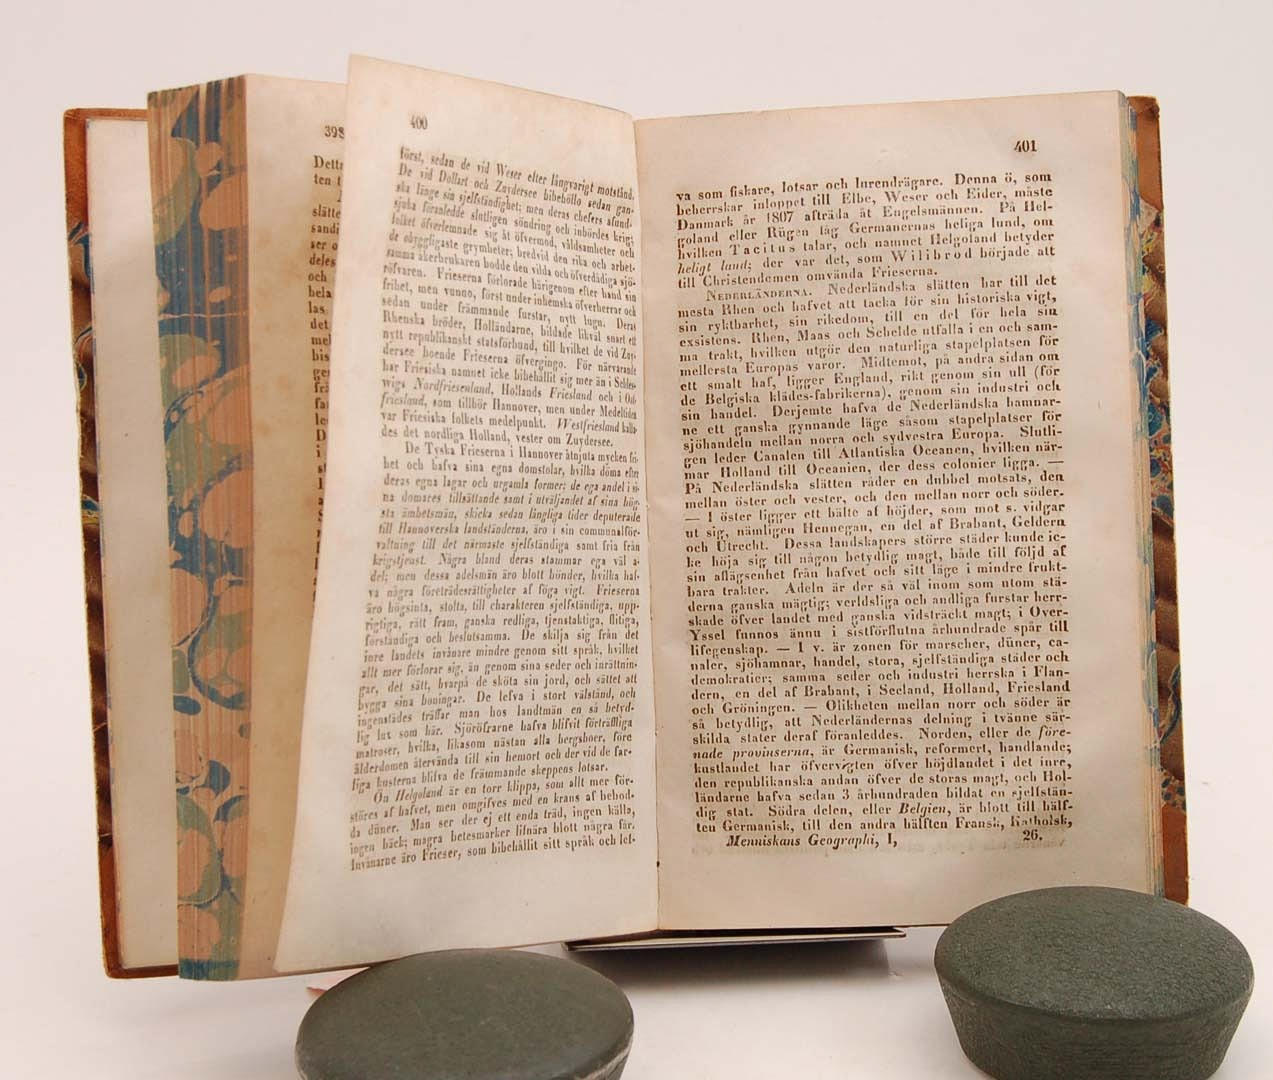 398
Detta
ten
slätte
sandi
ser o
deles
och
hela
las
det
mel
bis
gen
frå
fa
400
först, sedan de vid Weser efter långvarigt motstånd.
De vid Dollart och Zuydersee bibehöllo sedan gan-
ska länge sin sjelfständighet; men deras chefers afund-
sjuka föranledde slutligen söndring och inbördes krig;
folket öfverlemnade sig åt öfvermod, våldsamheter och
de obyggligaste grymheter; bredvid den rika och arbet-
samma åkerbrukaren bodde den vilda och öfverdådiga sjö-
röfvaren. Frieserna förlorade härigenom efter hand sin
frihet, men vunno, först under inhemska öfverherrar och
sedan under främmande furstar, nytt lugn. Deras
Rhenska bröder, Holländarne, bildade likväl snart ett
nytt republikanskt statsförbund, till hvilket de vid Zuy-
dersee boende Frieserna öfvergingo. För närvarande
har Friesiska namnet icke bibehållit sig mer än i Schles-
wigs Nordfriesenland, Hollands Friesland och i Ost-
friesland, som tillhör Hannover, men under Medeltiden
var Friesiska folkets medelpunkt. Westfriesland kalla-
des det nordliga Holland, vester om Zuydersee.
De Tyska Frieserna i Hannover åtnjuta mycken fri-
het och hafva sina egna domstolar, hvilka döma efter
deras egna lagar och urgamla former; de ega andel i si-
na domares tillsättande samt i utväljandet af sina hög-
sta ämbetsmän, skicka sedan långliga tider deputerade
till Hannoverska landständerna, äro i sin communalför-
valtning till det närmaste sjelfständiga samt fria från
krigstjenst. Några bland deras stammar ega väl a-
del; men dessa adelsmän äro blott bönder, hvilka haf-
va några företrädesrättigheter af föga vigt. Frieserna
äro högsinta, stolta, till charakteren sjelfständiga, upp-
rigtiga, rätt fram, ganska redliga, tjenstaktiga, flitiga,
förståndiga och beslutsamma. De skilja sig från det
inre landets invånare mindre genom sitt språk, hvilket
allt mer förlorar sig, än genom sina seder och inrättnin-
gar, det sätt, hvarpå de sköta sin jord, och sättet att
bygga sina boningar. De lefva i stort välstånd, och
ingenstädes träffar man hos landtmän en så betyd-
lig lux som här. Sjöröfrarne hafva blifvit förträffliga
matroser, hvilka, likasom nästan alla bergsboer, före
ålderdomen återvända till sin hemort och der vid de far-
liga kusterna blifva de främmande skeppens lotsar.
Ön Helgoland är en torr klippa, som allt mer för-
störes af hafvet, men omgifves med en krans af bebod-
da düner. Man ser der ej ett enda träd, ingen källa,
ingen bäck; magra betesmarker lifnära blott några får.
Invånarne äro Frieser, som bibehållit sitt språk och lef-
401
va som fiskare, lotsar och lurendrägare. Denna ö, som
beherrskar inloppet till Elbe, Weser och Eider, måste
Danmark år 1807 afträda åt Engelsmännen. På Hel-
goland eller Rügen låg Germanernas heliga lund, om
hvilken Tacitus talar, och namnet Helgoland betyder
heligt land; der var det, som Wilibrod började att
till Christendomen omvända Frieserna.
NEDERLÄNDERNA. Nederländska slätten har till det
mesta Rhen och hafvet att tacka för sin historiska vigt,
sin ryktbarhet, sin rikedom, till en del för hela sin
exsistens. Rhen, Maas och Schelde utfalla i en och sam-
ma trakt, hvilken utgör den naturliga stapelplatsen för
mellersta Europas varor. Midtemot, på andra sidan om
ett smalt haf, ligger England, rikt genom sin ull (för
de Belgiska klädes-fabrikerna), genom sin industri och
sin handel. Derjemte hafva de Nederländska hamnar-
ne ett ganska gynnande läge såsom stapelplatser för
sjöhandeln mellan norra och sydvestra Europa. Slutli-
gen leder Canalen till Atlantiska Oceanen, hvilken när-
mar Holland till Oceanien, der dess colonier ligga. —
På Nederländska slätten råder en dubbel motsats, den
mellan öster och vester, och den mellan norr och söder.
— I öster ligger ett bälte af höjder, som mot s. vidgar
ut sig, nämligen Hennegau, en del af Brabant, Geldern
och Utrecht. Dessa landskapers större städer kunde ic-
ke höja sig till någon betydlig magt, både till följd af
sin aflägsenhet från hafvet och sitt läge i mindre frukt-
bara trakter. Adeln är der så väl inom som utom stä-
derna ganska mägtig; verldsliga och andliga furstar herr-
skade öfver landet med ganska vidsträckt magt; i Over-
Yssel funnos ännu i sistförflutna århundrade spår till
lifegenskap. — I v. är zonen för marscher, düner, ca-
naler, sjöhamnar, handel, stora, sjelfständiga städer och
demokratier; samma seder och industri herrska i Flan-
dern, en del af Brabant, i Seeland, Holland, Friesland
och Gröningen. — Olikheten mellan norr och söder är
så betydlig, att Nederländernas delning i tvänne sär-
skilda stater deraf föranleddes. Norden, eller de före-
nade provinserna, är Germanisk, reformert, handlande;
kustlandet har öfvervigten öfver höjdlandet i det inre,
den republikanska andan öfver de storas magt, och Hol-
ländarne hafva sedan 3 århundraden bildat en sjelfstän-
dig stat. Södra delen, eller Belgien, är blott till hälf-
ten Germanisk, till den andra hälften Fransk, Katholsk,
Menniskans Geographi, I, 26.